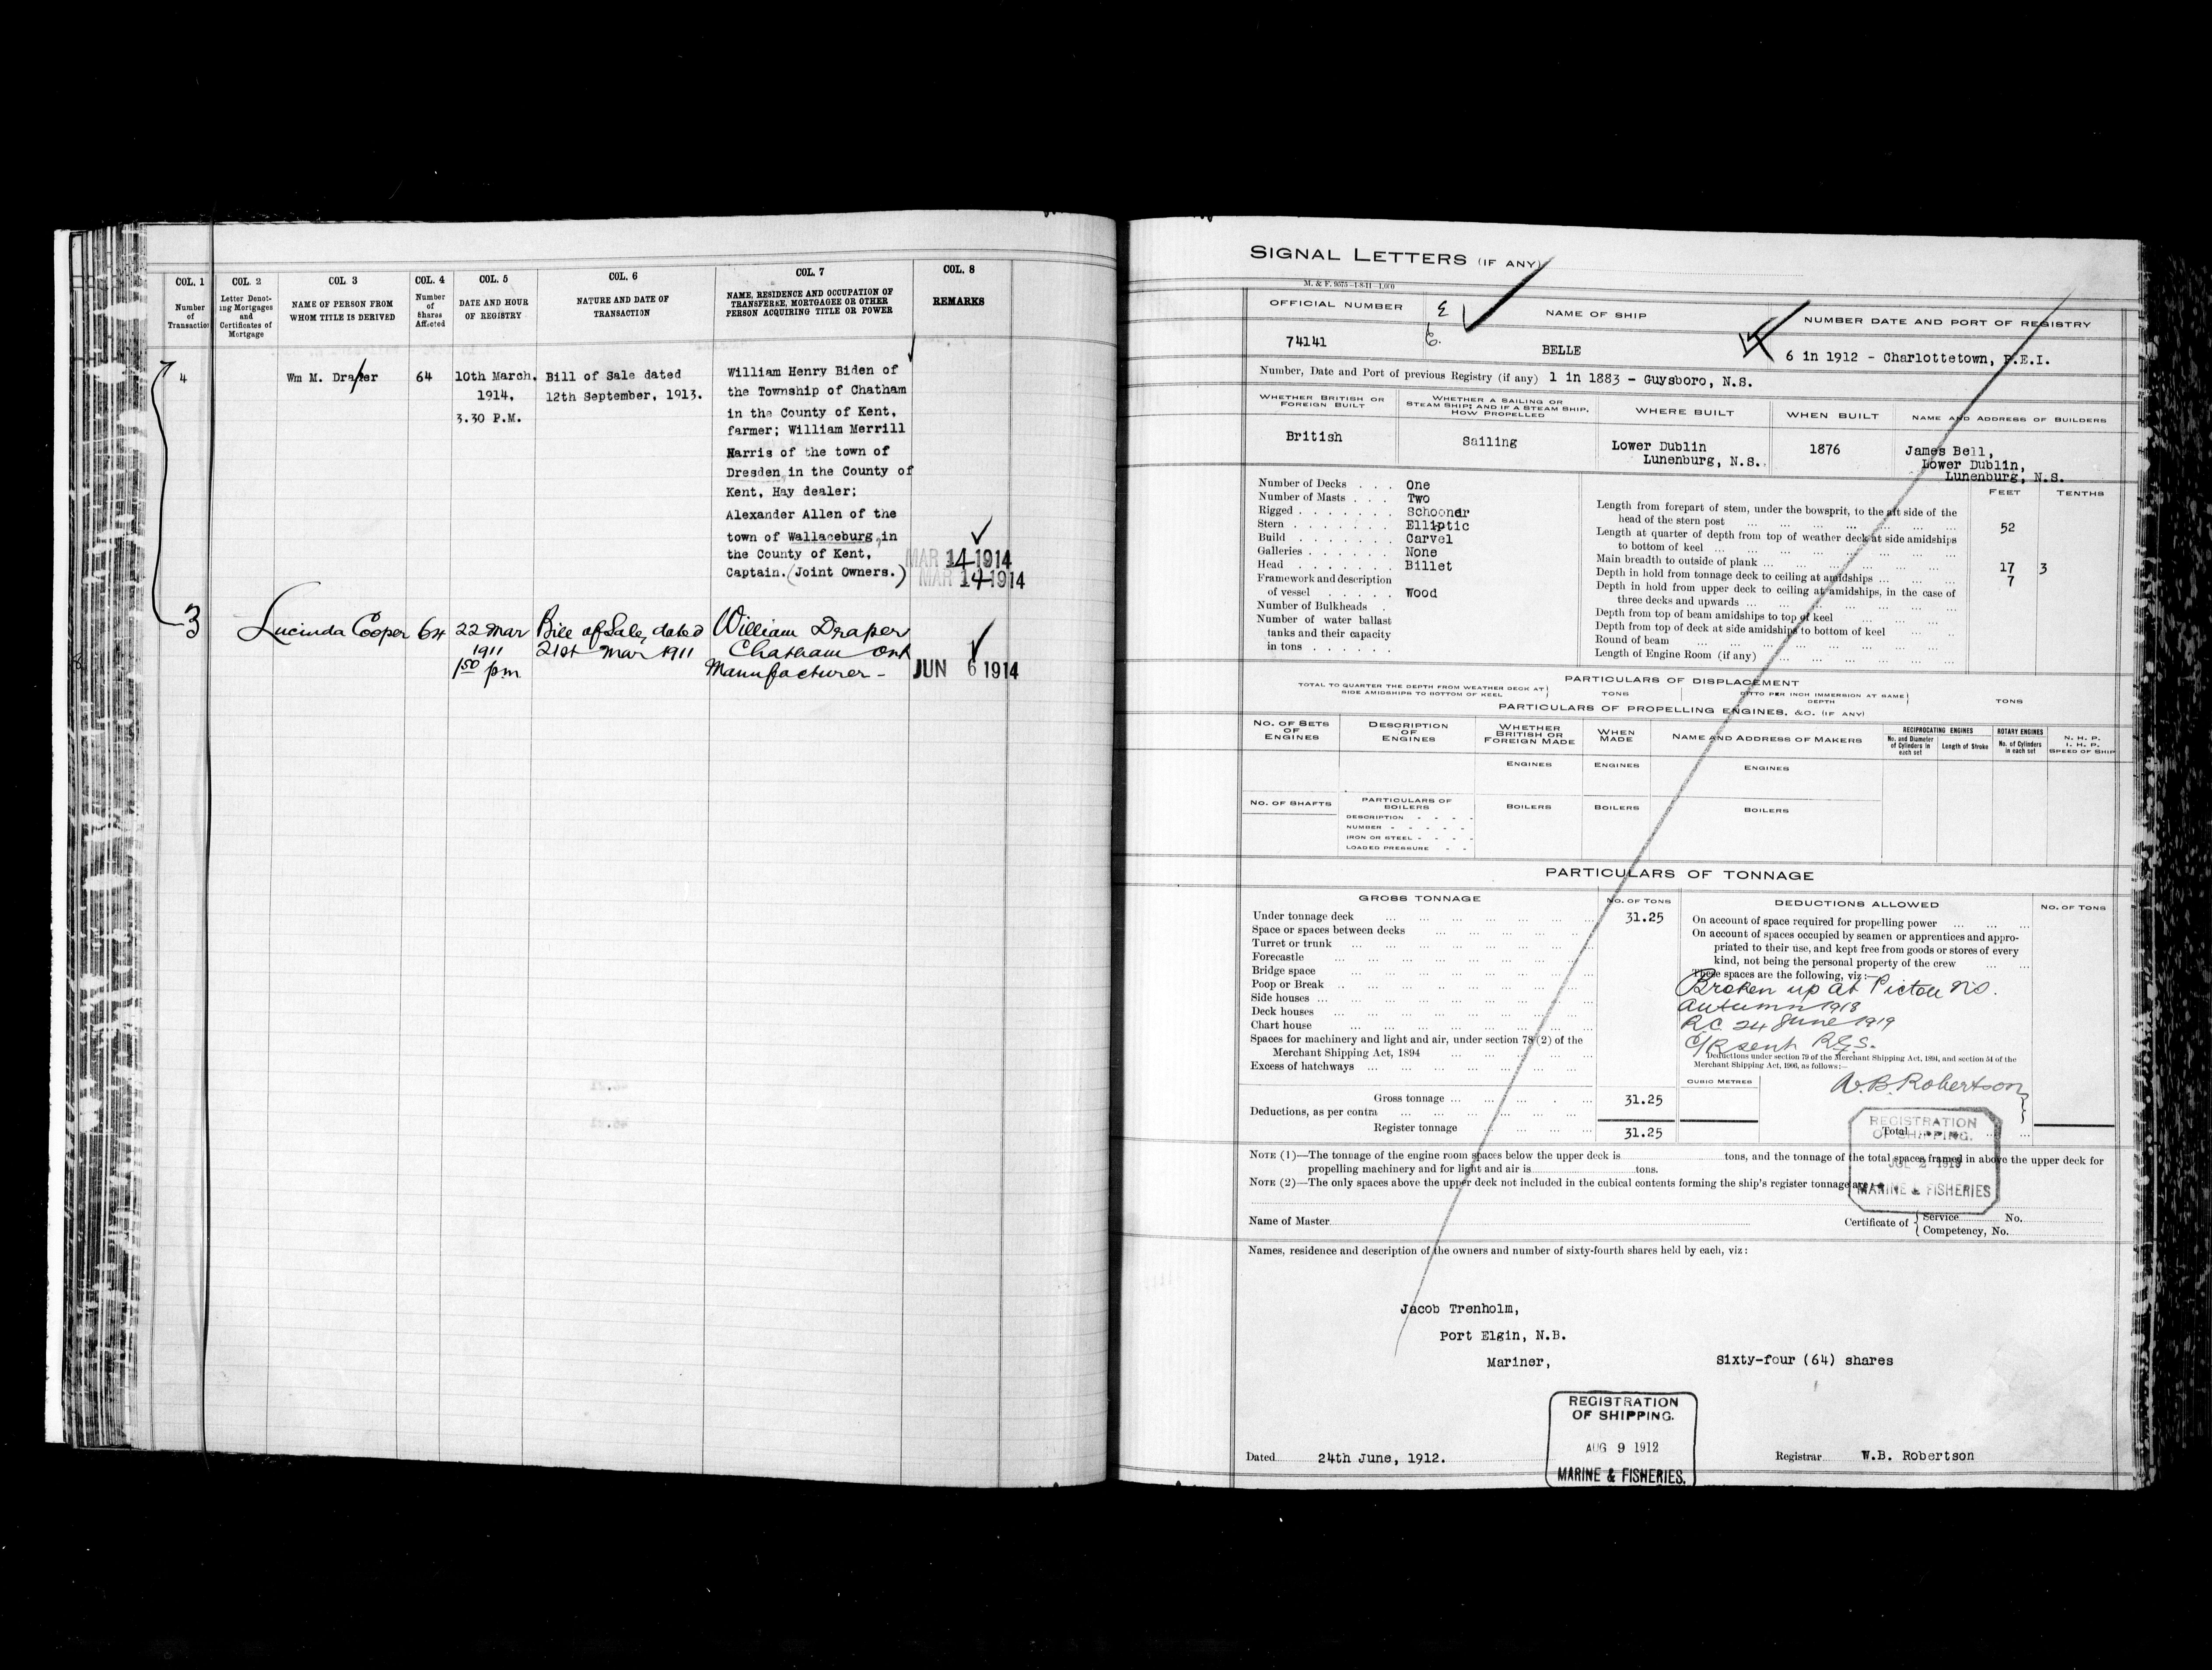 COL. 1
Number
of
Transaction
COL. 2
Letter Denot-
ing Mortgages
and
Certificates of
Mortgage
COL. 3
NAME OF PERSON FROM
WHOM TITLE IS DERIVED
COL. 4
Number
of
Shares
Affected
COL. 5
DATE AND HOUR
OF REGISTRY
COL. 6
NATURE AND DATE OF
TRANSACTION
COL. 7
NAME, RESIDENCE AND OCCUPATION OF
TRANSFEREE, MORTGAGEE OR OTHER
PERSON ACQUIRING TITLE OR POWER
COL. 8
REMARKS
4
Wm M. Draper
64
10th March,
1914,
3.30 P.M.
Bill of Sale dated
12th September, 1913.
William Henry Biden of
the Township of Chatham
in the County of Kent,
farmer; William Merrill
Harris of the town of
Dresden in the County of
Kent, Hay dealer;
Alexander Allen of the
town of Wallaceburg, in
the County of Kent,
Captain. (Joint Owners.)
MAR 14 1914
MAR 14 1914
3
Lucinda Cooper
64
22 Mar
1911
1 50 pm
Bill of Sale, dated
21st Mar 1911
William Draper
Chatham Ont
Manufacturer -
JUN 6 1914
SIGNAL LETTERS (IF ANY)
M. & F. 9575-1-8-11-1,000
OFFICIAL NUMBER
NAME OF SHIP
NUMBER DATE AND PORT OF REGISTRY
74141
BELLE
6 in 1912 - Charlottetown, P.E.I.
Number, Date and Port of previous Registry (if any) 1 in 1883 - Guysboro, N.S.
WHETHER BRITISH OR
FOREIGN BUILT
WHETHER A SAILING OR
STEAM SHIP; AND IF A STEAM SHIP,
HOW PROPELLED
WHERE BUILT
WHEN BUILT
NAME AND ADDRESS OF BUILDERS
British
Sailing
Lower Dublin
Lunenburg, N.S.
1876
James Bell,
Lower Dublin,
Lunenburg, N.S.
Number of Decks . . . One
Number of Masts . . . Two
Rigged . . . . . . . Schooner
Stern . . . . . . . Elliptic
Build . . . . . . . Carvel
Galleries . . . . . . None
Head . . . . . . . Billet
Framework and description
of vessel . . . . . Wood
Number of Bulkheads .
Number of water ballast
tanks and their capacity
in tons . . . . . .
FEET TENTHS
Length from forepart of stem, under the bowsprit, to the aft side of the
head of the stern post ... 52
Length at quarter of depth from top of weather deck at side amidships
to bottom of keel ...
Main breadth to outside of plank ... 17 3
Depth in hold from tonnage deck to ceiling at amidships ... 7
Depth in hold from upper deck to ceiling at amidships, in the case of
three decks and upwards ...
Depth from top of beam amidships to top of keel
Depth from top of deck at side amidships to bottom of keel ...
Round of beam ...
Length of Engine Room (if any) ...
PARTICULARS OF DISPLACEMENT
TOTAL TO QUARTER THE DEPTH FROM WEATHER DECK AT
SIDE AMIDSHIPS TO BOTTOM OF KEEL
TONS
DITTO PER INCH IMMERSION AT SAME
DEPTH
TONS
PARTICULARS OF PROPELLING ENGINES, &C. (IF ANY)
NO. OF SETS
OF
ENGINES
DESCRIPTION
OF
ENGINES
WHETHER
BRITISH OR
FOREIGN MADE
WHEN
MADE
NAME AND ADDRESS OF MAKERS
RECIPROCATING ENGINES
No. and Diameter
of Cylinders in
each set
Length of Stroke
ROTARY ENGINES
No. of Cylinders
in each set
N. H. P.
I. H. P.
SPEED OF SHIP
ENGINES
ENGINES
ENGINES
NO. OF SHAFTS
PARTICULARS OF
BOILERS
DESCRIPTION - - - -
NUMBER - - - - -
IRON OR STEEL - - - -
LOADED PRESSURE - -
BOILERS
BOILERS
BOILERS
PARTICULARS OF TONNAGE
GROSS TONNAGE
NO. OF TONS
DEDUCTIONS ALLOWED
NO. OF TONS
Under tonnage deck ... 31.25
Space or spaces between decks ...
Turret or trunk ...
Forecastle ...
Bridge space ...
Poop or Break ...
Side houses ...
Deck houses ...
Chart house ...
Spaces for machinery and light and air, under section 78 (2) of the
Merchant Shipping Act, 1894 ...
Excess of hatchways ...
Gross tonnage ... 31.25
Deductions, as per contra ...
Register tonnage ... 31.25
On account of space required for propelling power ...
On account of spaces occupied by seamen or apprentices and appro-
priated to their use, and kept free from goods or stores of every
kind, not being the personal property of the crew ...
These spaces are the following, viz:—
Broken up at Pictou NS.
autumn 1918
R.C. 24 June 1919
C/R sent R.G.S.
Deductions under section 79 of the Merchant Shipping Act, 1894, and section 54 of the
Merchant Shipping Act, 1906, as follows:—
CUBIC METRES
W.B. Robertson
Total ...
REGISTRATION
OF SHIPPING.
JUL 2 1919
MARINE & FISHERIES
NOTE (1)—The tonnage of the engine room spaces below the upper deck is tons, and the tonnage of the total spaces framed in above the upper deck for
propelling machinery and for light and air is tons.
NOTE (2)—The only spaces above the upper deck not included in the cubical contents forming the ship's register tonnage are:
Name of Master
Certificate of { Service No.
Competency, No.
Names, residence and description of the owners and number of sixty-fourth shares held by each, viz:
Jacob Trenholm,
Port Elgin, N.B.
Mariner, Sixty-four (64) shares
REGISTRATION
OF SHIPPING.
AUG 9 1912
MARINE & FISHERIES.
Dated 24th June, 1912.
Registrar W.B. Robertson